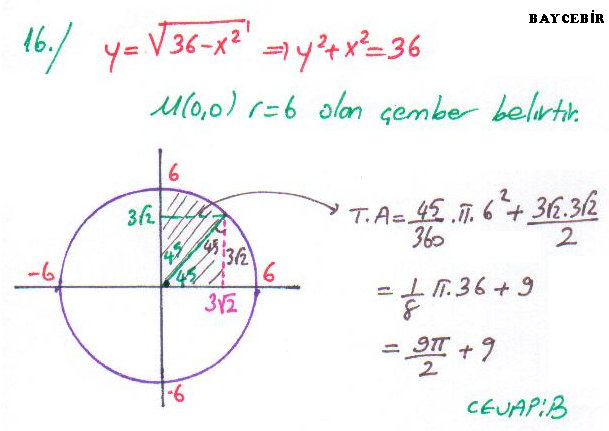 BAYCEBİR
16./ y=√(36-x²) ⇒ y²+x²=36
M(0,0) r=6 olan çember belirtir.
6
3√2
45 45 3√2
-6 45 6
3√2
-6
T.A = 45/360 . π. 6² + 3√2.3√2/2
= 1/8 π.36 + 9
= 9π/2 + 9
CEVAP:B